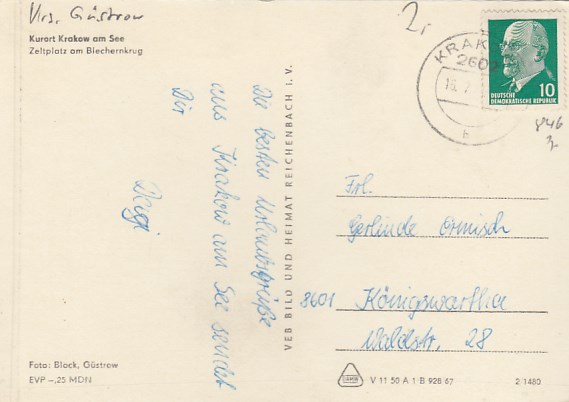 Krs. Güstrow
Kurort Krakow am See
Zeltplatz am Blechernkrug
Die besten Urlaubsgrüße
aus Krakow am See sendet
Dir
Foto: Block, Güstrow
EVP -,25 MDN
VEB BILD UND HEIMAT REICHENBACH I. V.
2,
KRAK
2602
16. 7.
b
DEUTSCHE
DEMOKRATISCHE REPUBLIK
10
846
Frl.
Gerlinde Ormisch
8601 Königswartha
Waldstr. 28
V 11 50 A 1/B 928/67
2 1480